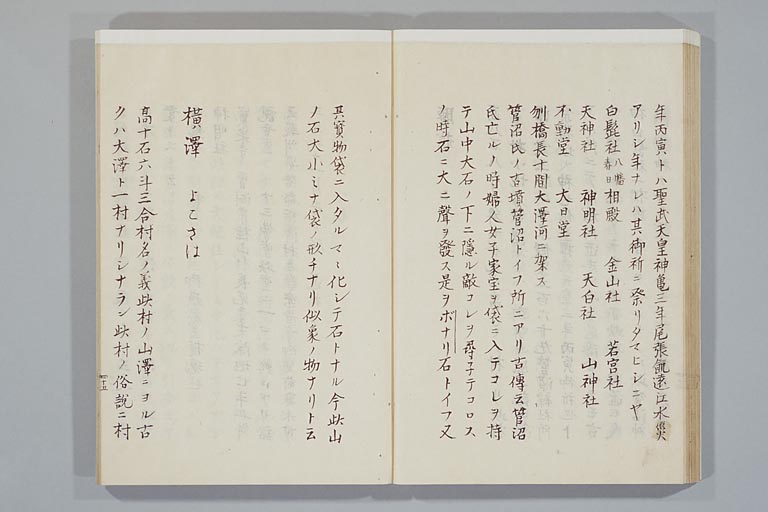 年丙寅トハ聖武天皇神亀三年尾張飢遠江水災
アリシ年ナレハ其御祈ニ祭リタマヒシニヤ
白髭社 八幡春日相殿 金山社 若宮社
天神社 神明社 天白社 山神社
不動堂 大日堂
刎橋長十間大澤河ニ架ス
菅沼氏ノ古墳菅沼トイフ所ニアリ古傳云菅沼
氏亡ルノ時婦人女子家宝ヲ袋ニ入テコレヲ持
テ山中大石ノ下ニ隠ル敵コレヲ尋子テコロス
ノ時石ニ大ニ聲ヲ發ス是ヲボナリ石トイフ又
其寳物袋ニ入タルママ化シテ石トナル今此山
ノ石大小ミナ袋ノ形チナリ似象ノ物ナリト云
横澤 よこさは
高十石六斗三合村名ノ義此村ノ山澤ニヨル古
クハ大澤ト一村ナリシナラン此村ノ俗説ニ村
四十五